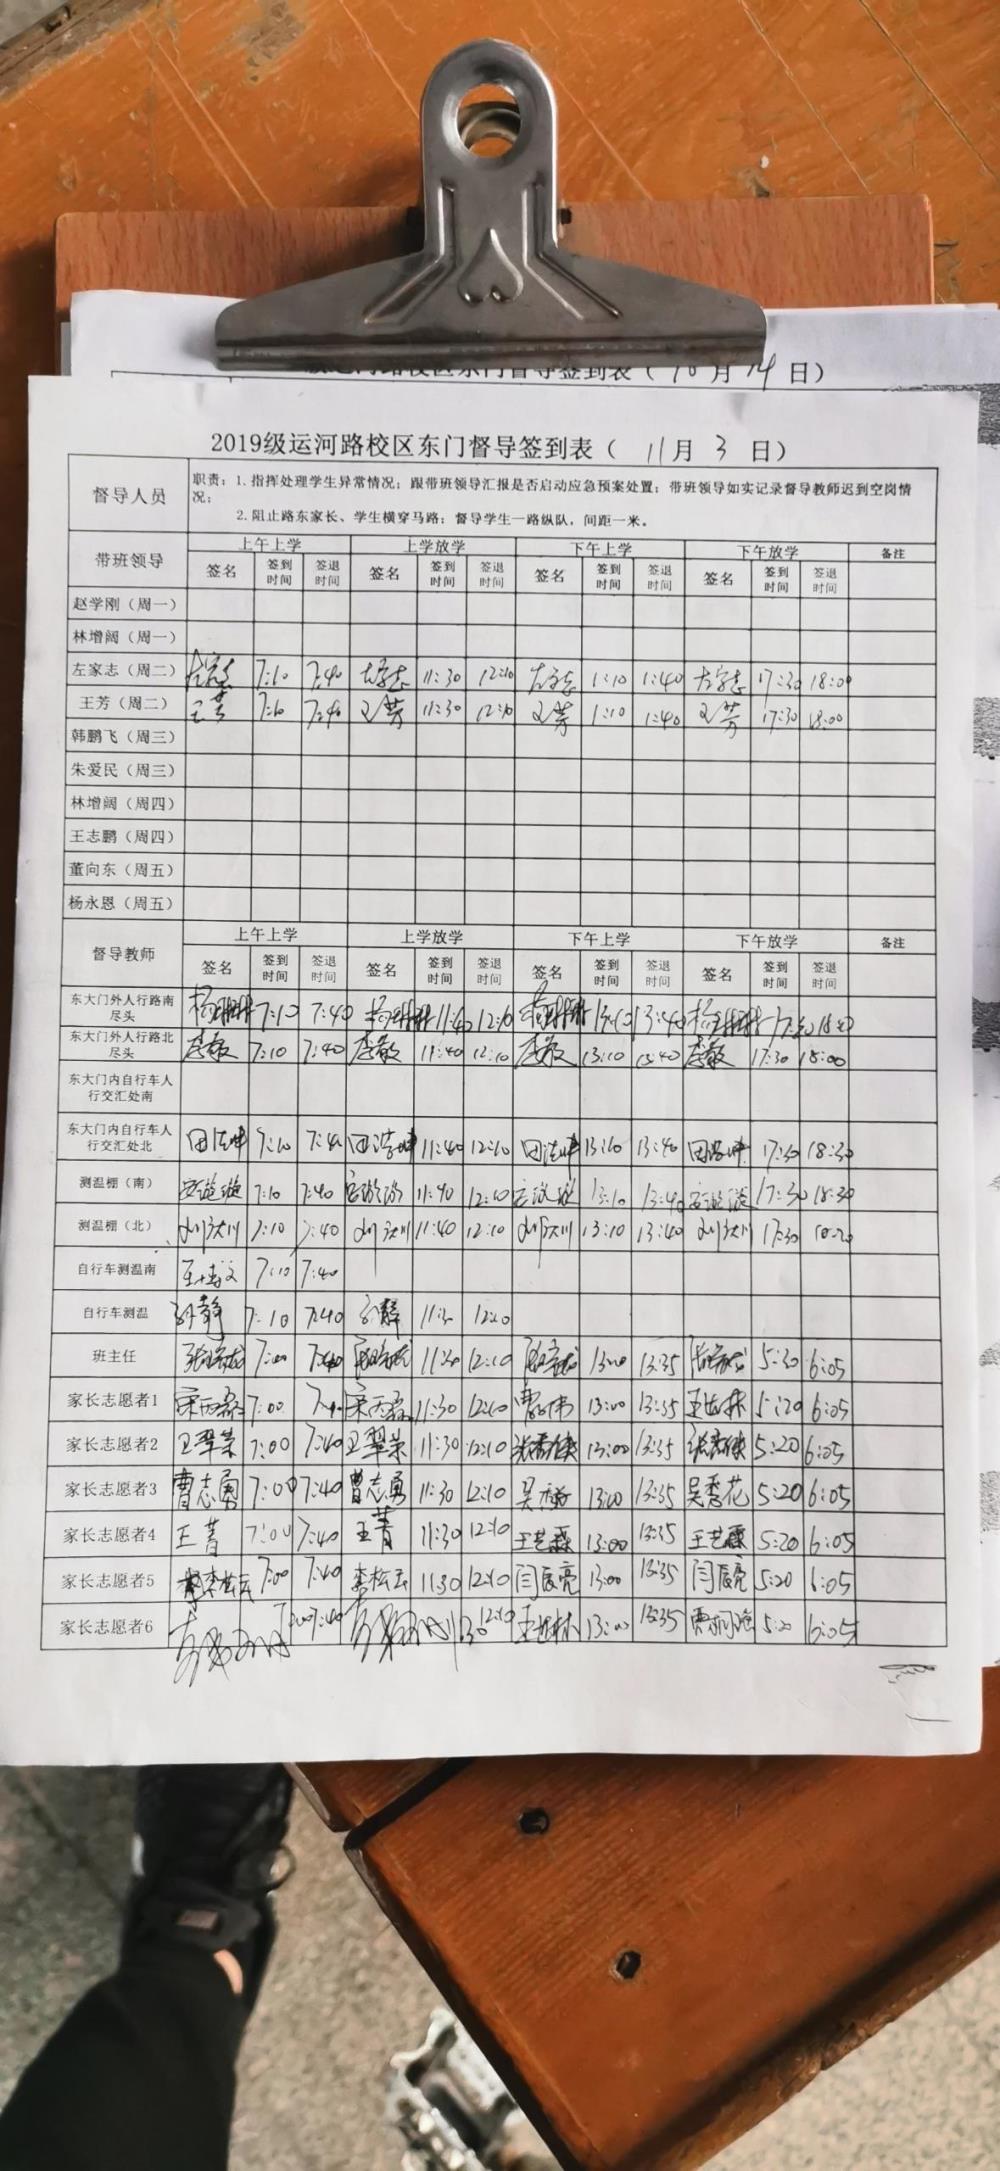 级运河路校区东门督导签到表（10月14日）
2019级运河路校区东门督导签到表（ 11月 3 日）
督导人员 职责：1.指挥处理学生异常情况；跟带班领导汇报是否启动应急预案处置；带班领导如实记录督导教师迟到空岗情
况；
2.阻止路东家长、学生横穿马路；督导学生一路纵队，间距一米。
带班领导 上午上学 上学放学 下午上学 下午放学 备注
签名 签到时间 签退时间 签名 签到时间 签退时间 签名 签到时间 签退时间 签名 签到时间 签退时间
赵学刚（周一）
林增阔（周一）
左家志（周二） 左家志 7:10 7:40 左家志 11:30 12:10 左家志 1:10 1:40 左家志 17:30 18:00
王芳（周二） 王芳 7:10 7:40 王芳 11:30 12:10 王芳 1:10 1:40 王芳 17:30 18:00
韩鹏飞（周三）
朱爱民（周三）
林增阔（周四）
王志鹏（周四）
董向东（周五）
杨永恩（周五）
督导教师 上午上学 上学放学 下午上学 下午放学 备注
签名 签到时间 签退时间 签名 签到时间 签退时间 签名 签到时间 签退时间 签名 签到时间 签退时间
东大门外人行路南尽头 7:10 7:40 11:40 12:10 13:10 13:40 17:30 18:00
东大门外人行路北尽头 李敏 7:10 7:40 李敏 11:40 12:10 李敏 13:10 13:40 李敏 17:30 18:00
东大门内自行车人行交汇处南
东大门内自行车人行交汇处北 7:10 7:40 11:40 12:10 13:10 13:40 17:30 18:30
测温棚（南） 7:10 7:40 11:40 12:10 13:10 13:40 17:30 18:30
测温棚（北） 刘洪川 7:10 7:40 刘洪川 11:40 12:10 刘洪川 13:10 13:40 刘洪川 17:30
自行车测温南 7:10 7:40
自行车测温 孙静 7:10 7:40 孙静 11:30 12:10
班主任 7:00 7:40 11:30 12:10 13:00 13:35 5:30 6:05
家长志愿者1 7:00 7:40 11:30 12:10 13:00 13:35 王世林 5:20 6:05
家长志愿者2 王翠荣 7:00 7:40 王翠荣 11:30 12:10 13:00 13:35 5:20 6:05
家长志愿者3 曹志勇 7:00 7:40 曹志勇 11:30 12:10 13:00 13:35 吴秀花 5:20 6:05
家长志愿者4 王菁 7:00 7:40 王菁 11:30 12:10 王艺霖 13:00 13:35 王艺霖 5:20 6:05
家长志愿者5 李松云 7:00 7:40 李松云 11:30 12:10 闫辰亮 13:00 13:35 闫辰亮 5:20 6:05
家长志愿者6 7:00 7:40 12:10 王世林 13:00 13:35 5:20 6:05